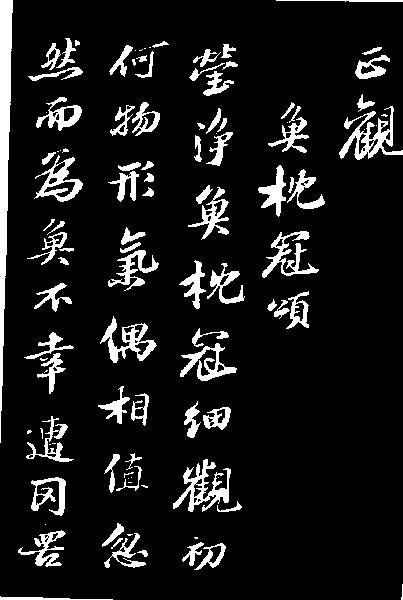 正觀
魚枕冠頌
瑩淨魚枕冠細觀初
何物形氣偶相值忽
然而為魚不幸遭网罟